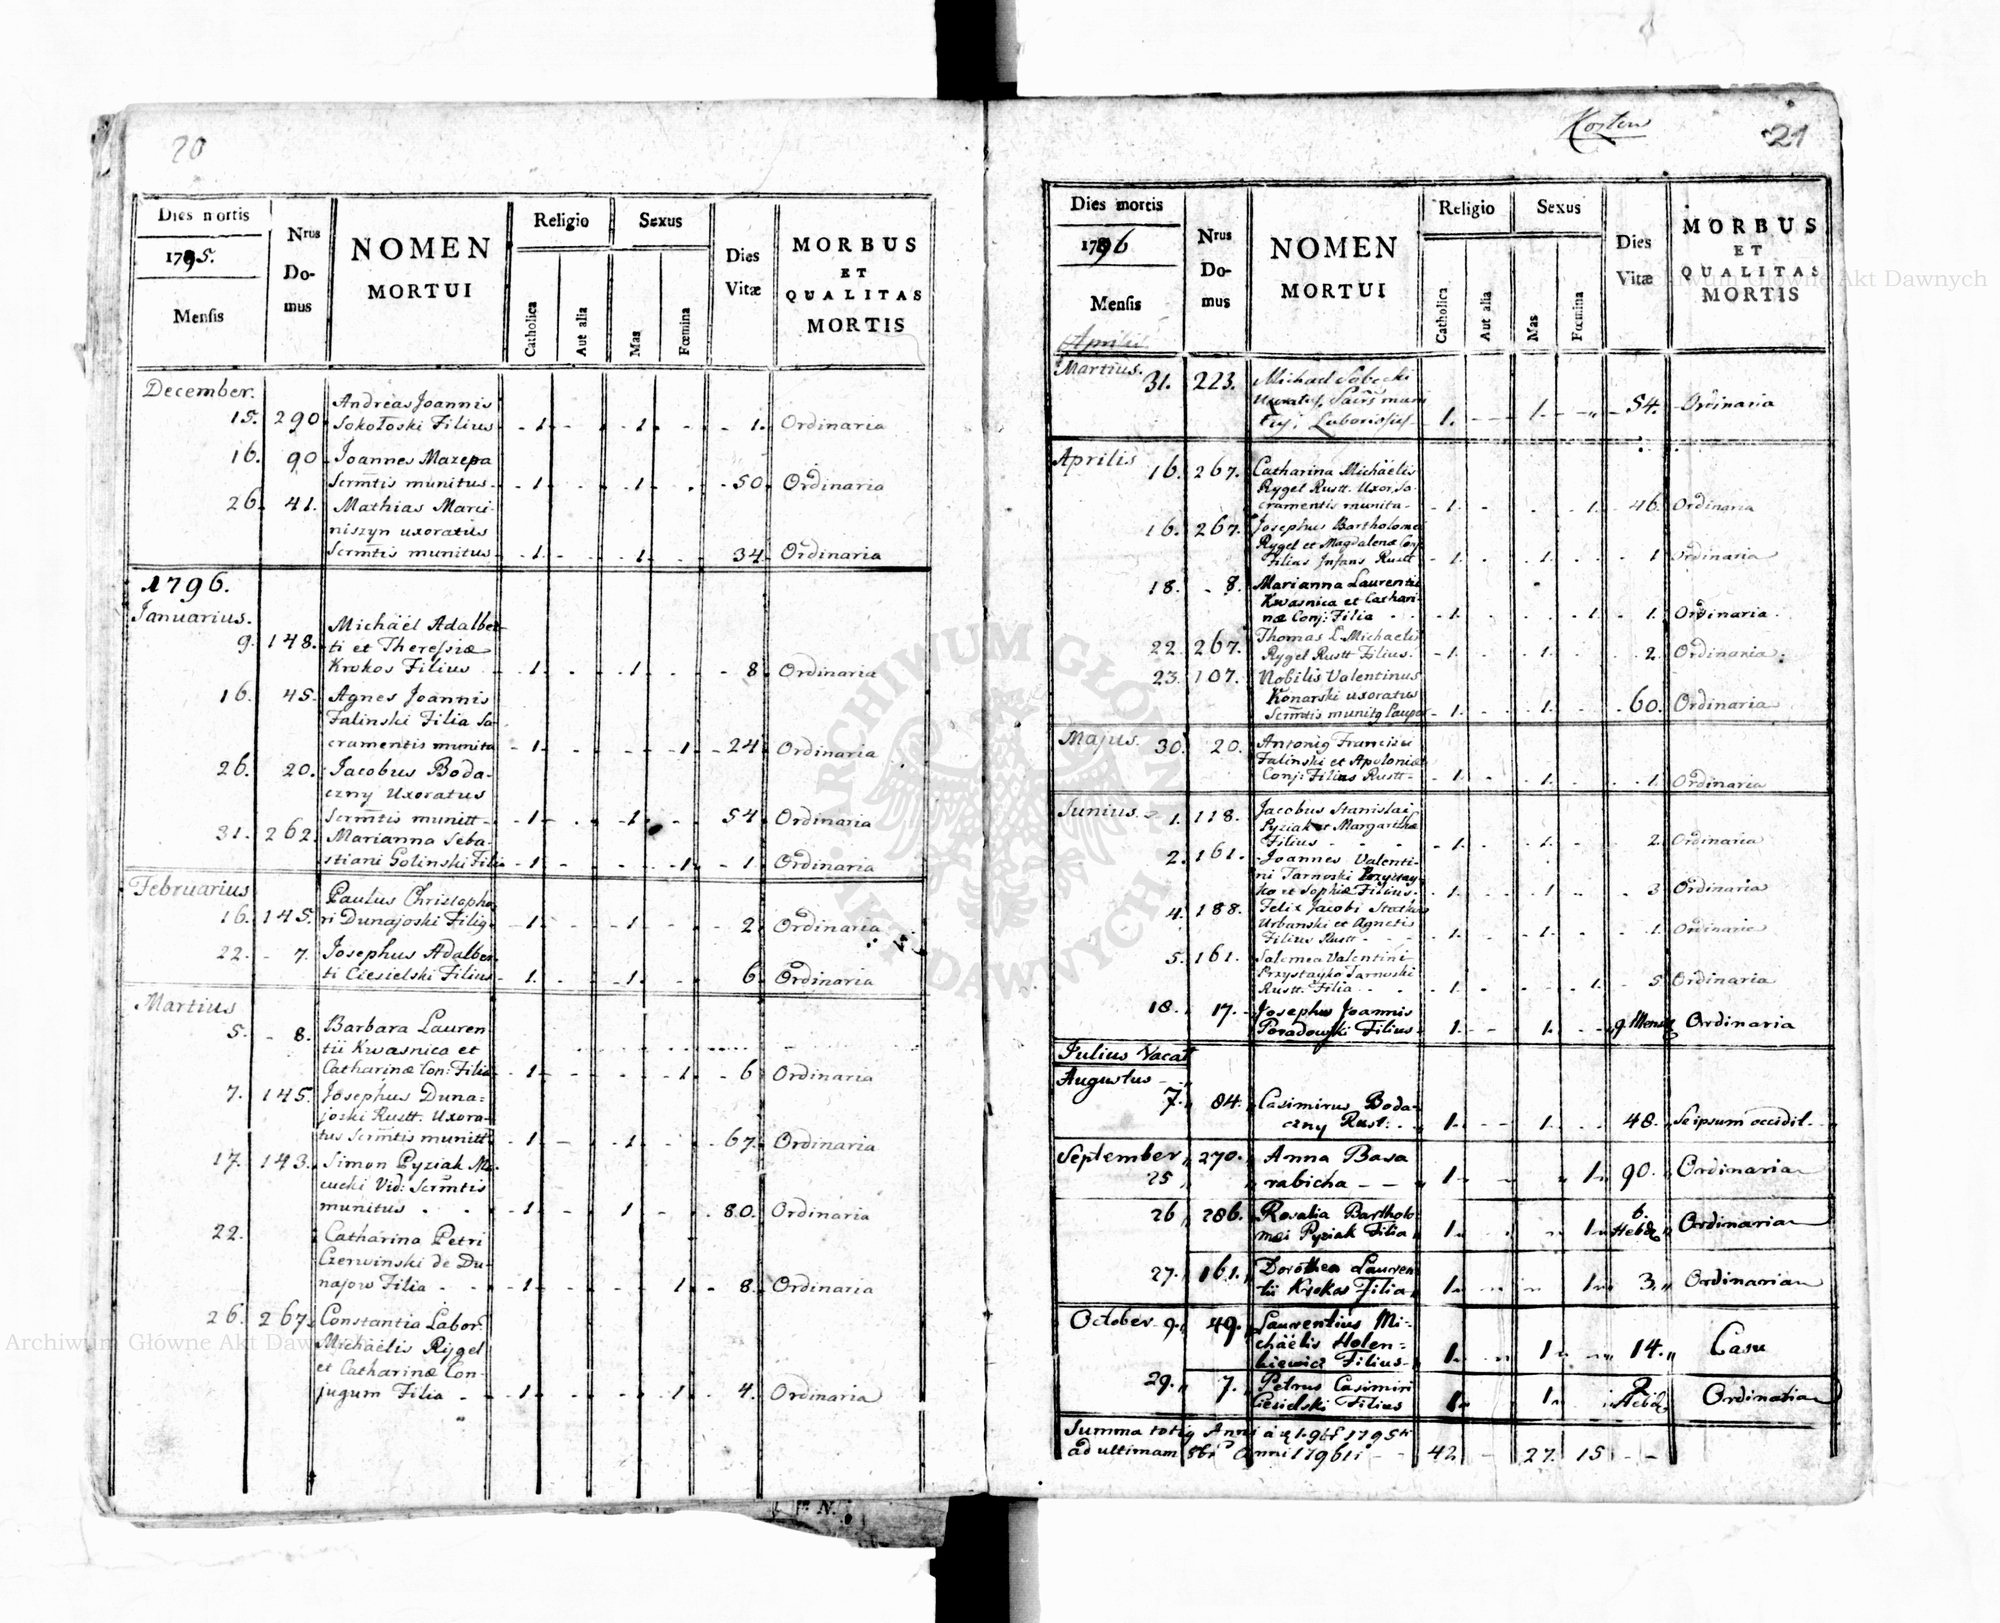 20
Dies mortis
1795.
Mensis
Nrus
Do-
mus
NOMEN
MORTUI
Religio
Catholica
Aut alia
Sexus
Mas
Fœmina
Dies
Vitæ
MORBUS
ET
QUALITAS
MORTIS
December.
Andreas Joannis
15. 290. Sokołoski Filius - 1. - - 1. - - 1. Ordinaria
16. 90 Joannes Mazepa
Scrmtis munitus. - 1. - - 1. - - 50. Ordinaria
26. 41. Mathias Marci-
niszyn uxoratus
Scrmtis munitus - 1. - 1. - 34. Ordinaria
1796.
Januarius.
Michäel Adalber-
9. 148. ti et Theresiæ
Krokos Filius - 1. - - 1. - - 8. Ordinaria
16. 45. Agnes Joannis
Falinski Filia Sa-
cramentis munita - 1. - - - 1. - 24. Ordinaria
26. 20. Jacobus Boda-
czny Uxoratus
Scrmtis munitt - 1. - - 1. - - 54. Ordinaria
31. 262. Marianna Seba-
stiani Golinski Filia - 1. - - - 1. - 1. Ordinaria
Februarius
Paulus Christopho-
16. 145. ri Dunajoski Filig. - 1. - - 1. - - 2. Ordinaria
22. - 7. Josephus Adalber-
ti Ciesielski Filius - 1. - - 1. - - 6. Ordinaria
Martius
5. - 8. Barbara Lauren-
tii Kwasnica et
Catharinæ Con: Filia - 1. - - - 1. - 6. Ordinaria
7. 145. Josephus Duna-
joski Rustt. Uxora-
tus Scrmtis munitt - 1. - 1. - - 67. Ordinaria
17. 143. Simon Pyziak
Vid: Scrmtis
munitus - 1. - - 1. - - 80. Ordinaria
22. Catharina Petri
Czerwinski de Du-
najow Filia - - 1. - - - 1. - 8. Ordinaria
26. 267. Constantia Labor.
Michäelis Rygel
et Catharinæ Con-
jugum Filia - - 1. - - - 1. - 4. Ordinaria
21
Dies mortis
1796
Mensis
Nrus
Do-
mus
NOMEN
MORTUI
Religio
Catholica
Aut alia
Sexus
Mas
Fœmina
Dies
Vitæ
MORBUS
ET
QUALITAS
MORTIS
Aprilis
Martius.
31. 223. Michael Sobecki
1. - - 1. - - 54. Ordinaria
Aprilis
16. 267. Catharina Michäelis
Rygel Rustt. Uxor, Sa-
cramentis munita - 1. - - 1. - 46. Ordinaria
16. 267. Josephus Bartholomei
Rygel et Magdalenæ Conj
Filius Infans Rustt - 1. - 1. - 1. Ordinaria
18. - 8. Marianna Laurentii
Kwasnica et Cathari-
næ Conj: Filia - - 1. - - 1. - 1. Ordinaria
22. 267. Thomas L. Michaelis
Rygel Rustt Filius. - 1. - 1. - 2. Ordinaria
23. 107. Nobilis Valentinus
Konarski uxoratus
Scrmtis munitg Pauper - 1. - 1. - 60. Ordinaria
Majus. 30. 20. Antonig Francisci
Falinski et Apoloniæ
Conj: Filius Rustt - - 1. - 1. - 1. Ordinaria
Junius. 1. 118. Jacobus Stanislai
Pyziak et Margarithæ
Filius - - - 1. - 1. - 2. Ordinaria
2. 161. Joannes Valenti-
ni Tarnoski Przystay-
ko et Sophiæ Filius. - 1. - 1. - 3 Ordinaria
4. 188. Felix Jacobi
Urbanski et Agnetis
Filius Rustt - - 1. - 1. - 1. Ordinaria
5. 161. Salomea Valentini
Przystayko Tarnoski
Rustt. Filia - - 1. - - 1. 5 Ordinaria
18. 17. Josephus Joannis
Poradowski Filius - 1. - - 1. - - 9. Mens. Ordinaria
Julius Vacat
Augustus
7. 84. Casimirus Boda-
czny Rust: - - 1. - - 1. - - 48. Seipsum occidit.
September
25 270. Anna Basa
rabicha - - 1. - - 1. 90. Ordinaria
26 286. Rosalia Bartholo-
mæi Pyziak Filia 1. - - 1. 6. Hebd. Ordinaria
27. 161. Dorothea Lauren
tii Krokos Filia 1. - - 1. 3. Ordinaria
October 9. 49. Laurentius Mi-
chäelis Holen-
kiewicz Filius 1. - 1. - 14. Casu
29. 7. Petrus Casimiri
Ciesielski Filius 1. 1. 2 Hebd. Ordinaria
Summa totig Anni 1795ti
ad ultimam 8bris Anni 1796ti - - 42 - 27. 15 - -
ARCHIWUM GŁÓWNE AKT DAWNYCH
Archiwum Główne Akt Dawnych
Archiwum Główne Akt Dawnych